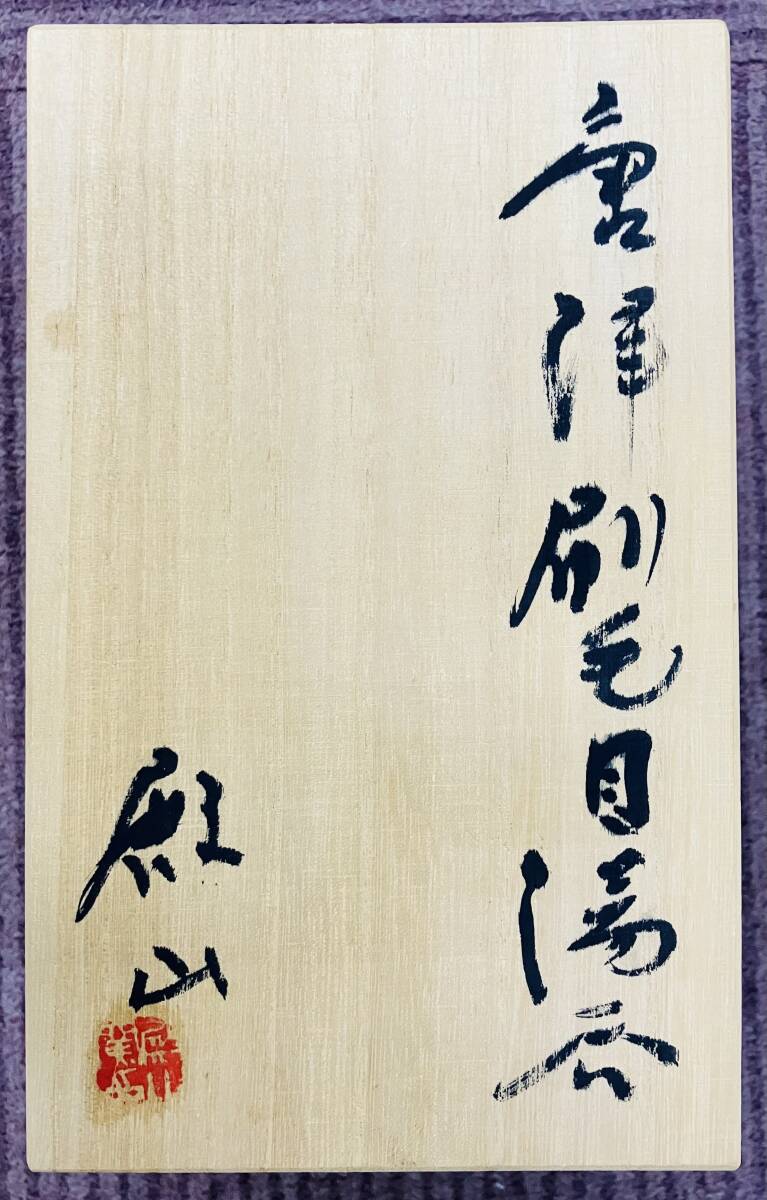 唐津刷毛目湯呑
殿山